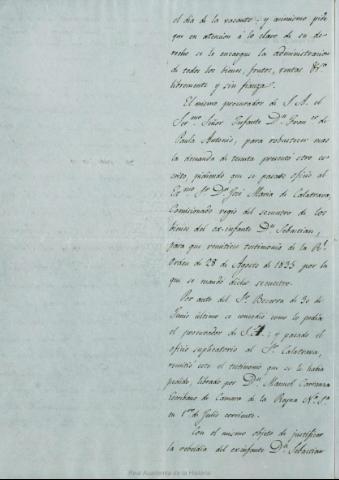 el dia de la vacante; y asimismo pide
que en atencion á lo claro de su de-
recho se le encargue la administracion
de todos los bienes, frutos, rentas &ª
libremente y sin fianza.
El mismo procurador de S. A. el
Ser.mo Señor Ynfante D.n Fran.co de
Paula Antonio, para robustecer mas
la demanda de tenuta presentó otro es-
crito, pidiendo que se pasase oficio al
Ex.mo Sr. D.n José Maria de Calatrava,
Comisionado regio del secuestro de los
bienes del ex-infante D.n Sebastian,
para que remitiese testimonio de la R.l
Orden de 28 de Agosto de 1835 por la
que se mandó dicho secuestro.
Por auto del Sr. Becerra de 30 de
Junio último se concedió como lo pedia
el procurador de S. A.; y pasado el
oficio suplicatorio al Sr. Calatrava,
remitió este el testimonio que se le habia
pedido, librado por D.n Manuel Carranza
Escribano de Camara de la Reyna N.ª S.ª
en 1.º de Julio corriente.
Con el mismo objeto de justificar
la rebeldia del ex-infante D.n Sebastian
Real Academia de la Historia